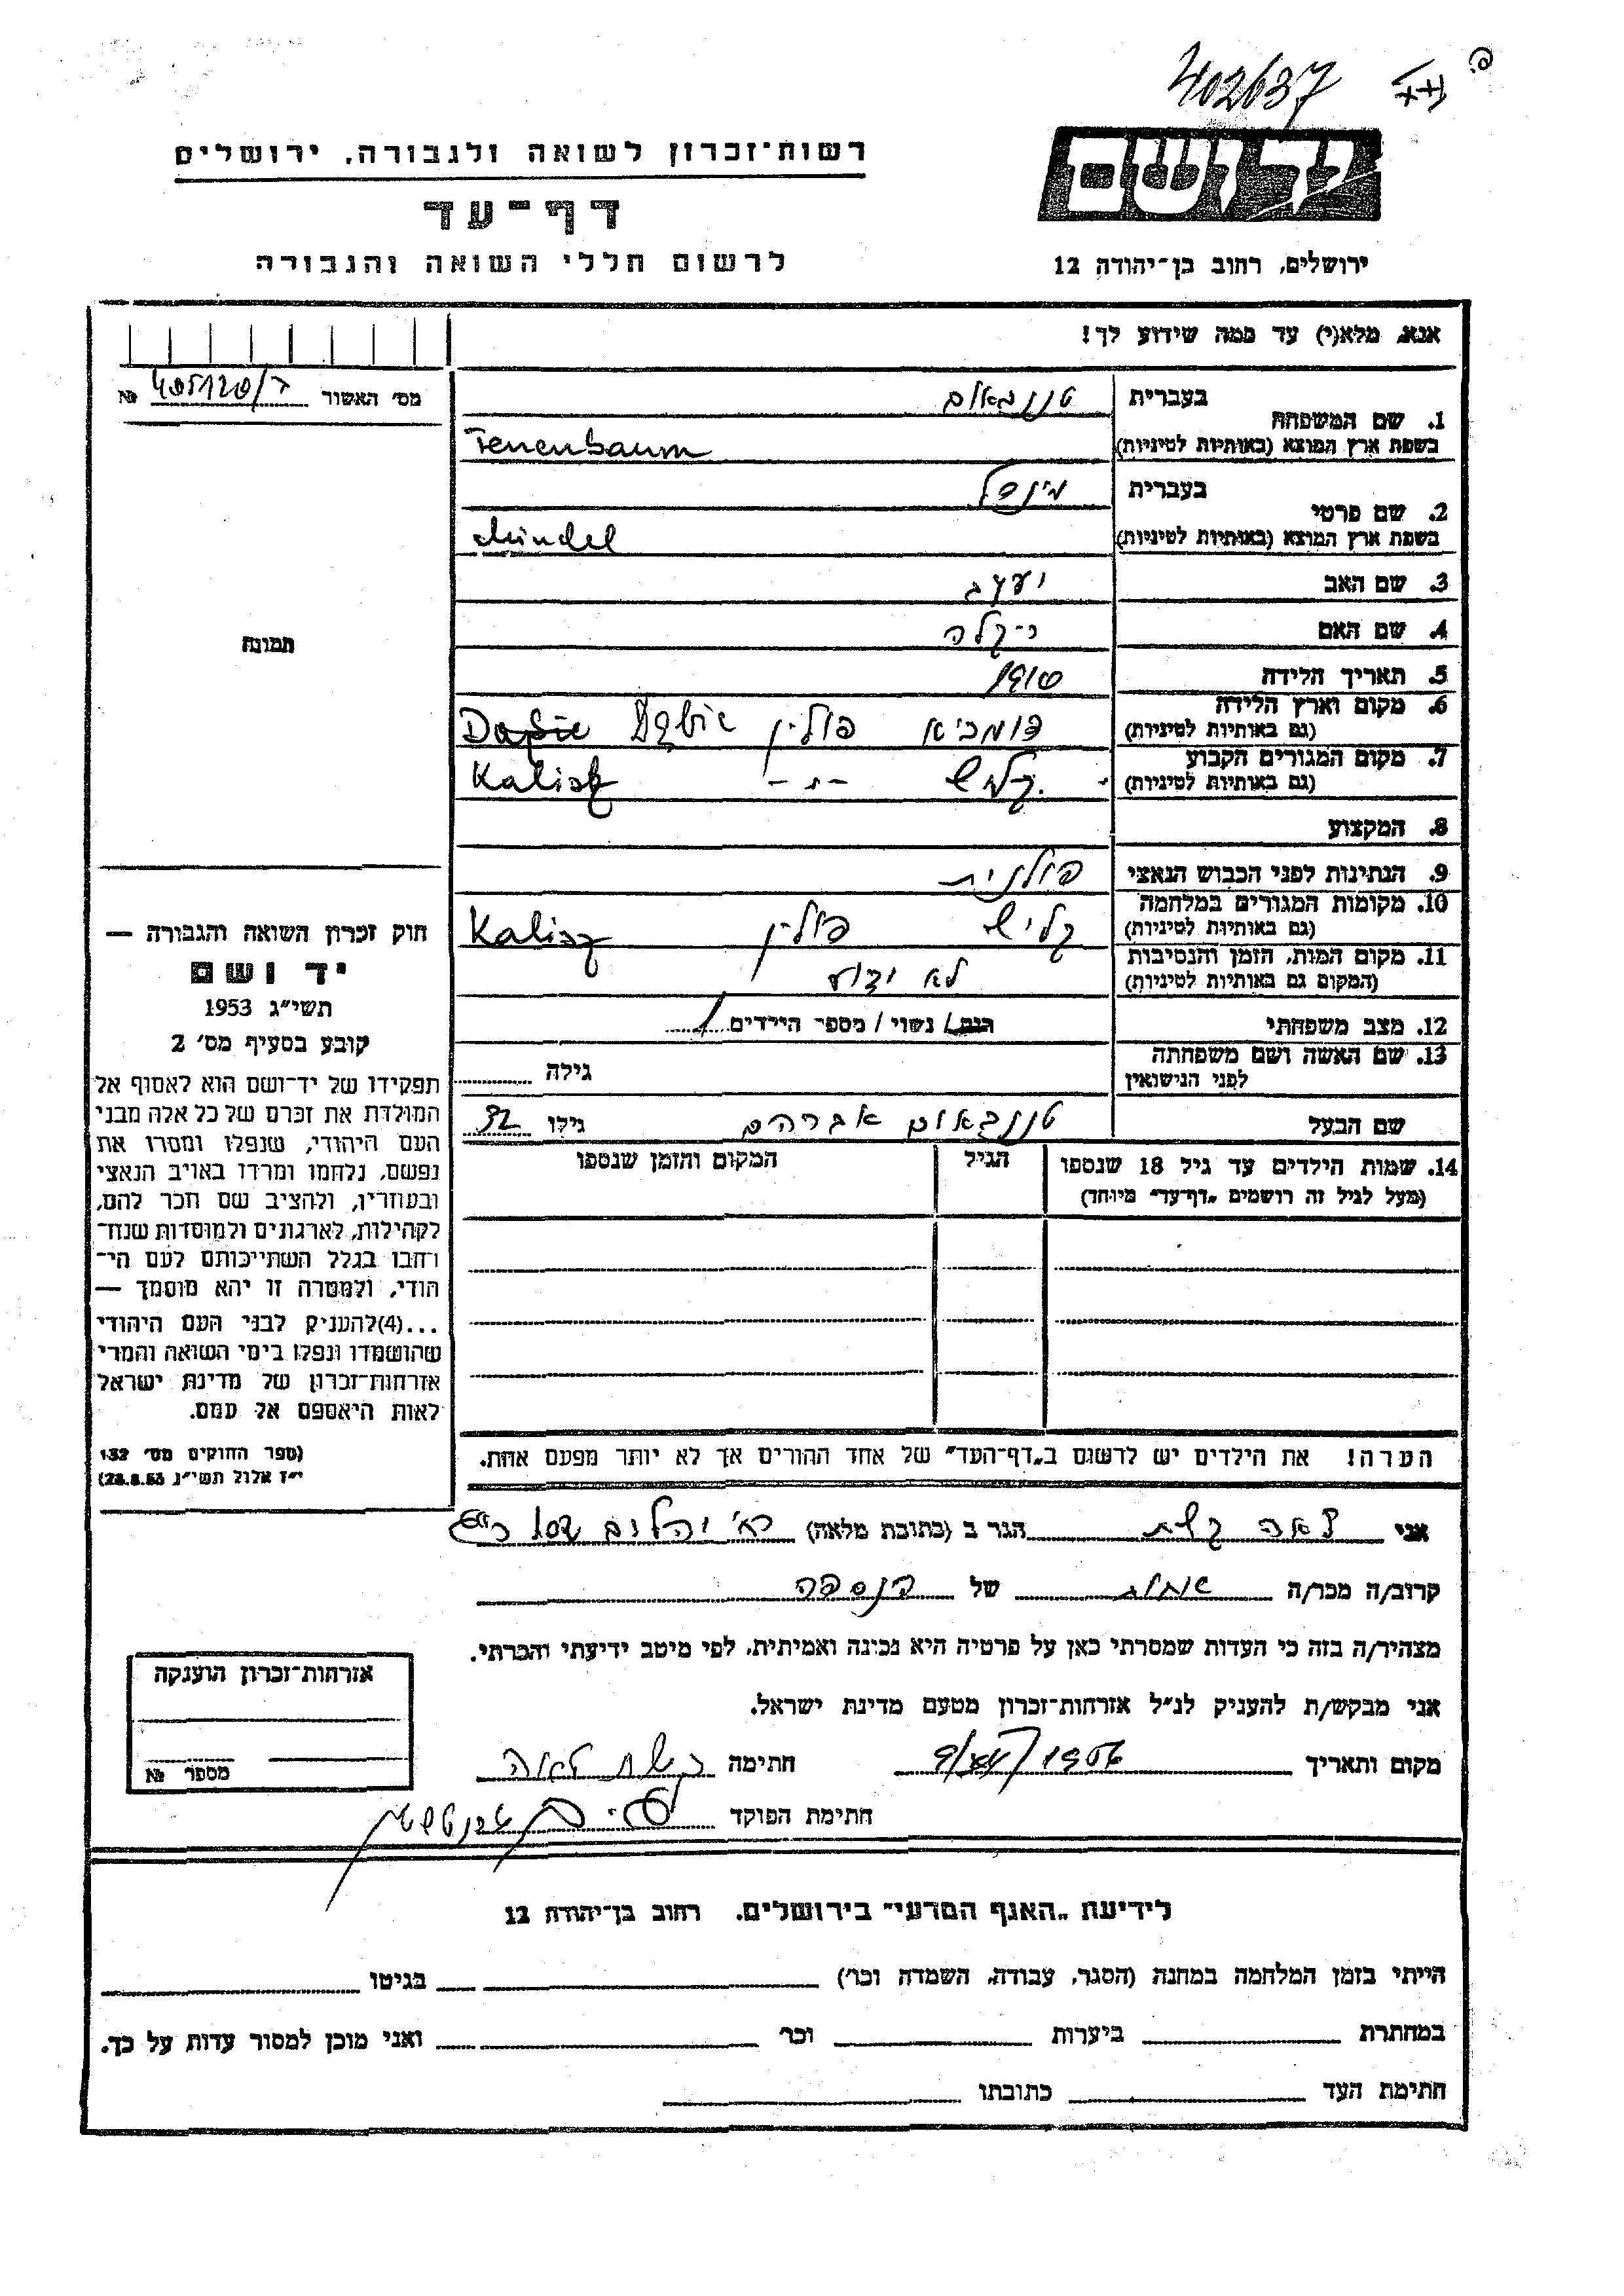 402637
יד ושם
רשות־זכרון לשואה ולגבורה, ירושלים
דף־עד
לרשום חללי השואה והגבורה
ירושלים, רחוב בן־יהודה 12
אנא, מלא(י) עד כמה שידוע לך!
מס׳ האשור №
1. שם המשפחה בעברית טננבאום
בשפת ארץ המוצא (באותיות לטיניות) Tenenbaum
2. שם פרטי בעברית מינדל
בשפת ארץ המוצא (באותיות לטיניות) Mindel
3. שם האב יעקב
4. שם האם
5. תאריך הלידה 1910
6. מקום וארץ הלידה
(גם באותיות לטיניות) פולין Dąbie
7. מקום המגורים הקבוע
(גם באותיות לטיניות) קליש -״- Kalisz
8. המקצוע
9. הנתינות לפני הכבוש הנאצי פולנית
10. מקומות המגורים במלחמה
(גם באותיות לטיניות) קליש פולין Kalisz
11. מקום המות, הזמן והנסיבות
(המקום גם באותיות לטיניות) לא ידוע
12. מצב משפחתי רווק/ נשוי / מספר הילדים 1
13. שם האשה ושם משפחתה
לפני הנישואין גילה
שם הבעל טננבאום אברהם גילו 32
14. שמות הילדים עד גיל 18 שנספו הגיל המקום והזמן שנספו
(מעל לגיל זה רושמים „דף־עד״ מיוחד)
הערה! את הילדים יש לרשום ב„דף־העד״ של אחד ההורים אך לא יותר מפעם אחת.
תמונה
חוק זכרון השואה והגבורה —
יד ושם
תשי״ג 1953
קובע בסעיף מס׳ 2
תפקידו של יד־ושם הוא לאסוף אל
המולדת את זכרם של כל אלה מבני
העם היהודי, שנפלו ומסרו את
נפשם, נלחמו ומרדו באויב הנאצי
ובעוזריו, ולהציב שם וזכר להם,
לקהילות, לארגונים ולמוסדות שנח־
רחבו בגלל השתייכותם לעם הי־
הודי, ולמטרה זו יהא מוסמך —
...(4)להעניק לבני העם היהודי
שהושמדו ונפלו בימי השואה והמרי
אזרחות־זכרון של מדינת ישראל
לאות היאספם אל עמם.
(ספר החוקים מס׳ 132
י״ז אלול תשי״ג 28.8.53)
אני לאה קשת הגר ב (כתובת מלאה)
קרוב/ה מכר/ה של הנספה
מצהיר/ה בזה כי העדות שמסרתי כאן על פרטיה היא נכונה ואמיתית, לפי מיטב ידיעתי והכרתי.
אני מבקש/ת להעניק לנ״ל אזרחות־זכרון מטעם מדינת ישראל.
מקום ותאריך 1956 חתימה קשת לאה
חתימת הפוקד
אזרחות־זכרון הוענקה
מספר №
לידיעת „האגף המדעי״ בירושלים, רחוב בן־יהודה 12
הייתי בזמן המלחמה במחנה (הסגר, עבודה, השמדה וכר׳) בגיטו
במחתרת ביערות וכר׳ ואני מוכן למסור עדות על כך.
חתימת העד כתובתו